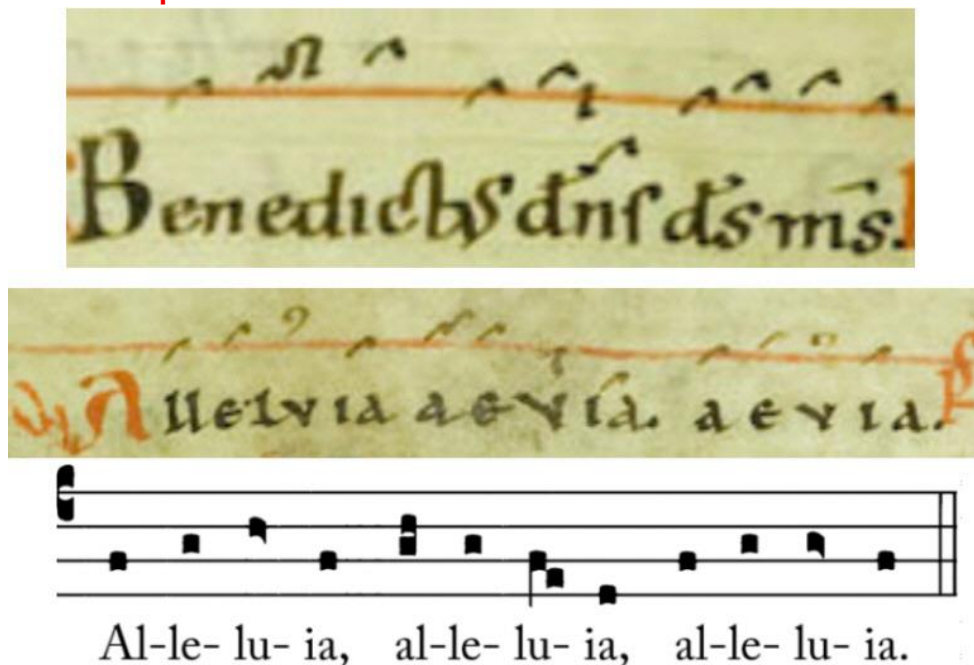 Benedictus dn̄s d̄s m̄s.
Alleluia aeuia. aeuia.
Al-le- lu- ia, al-le- lu- ia, al-le- lu- ia.